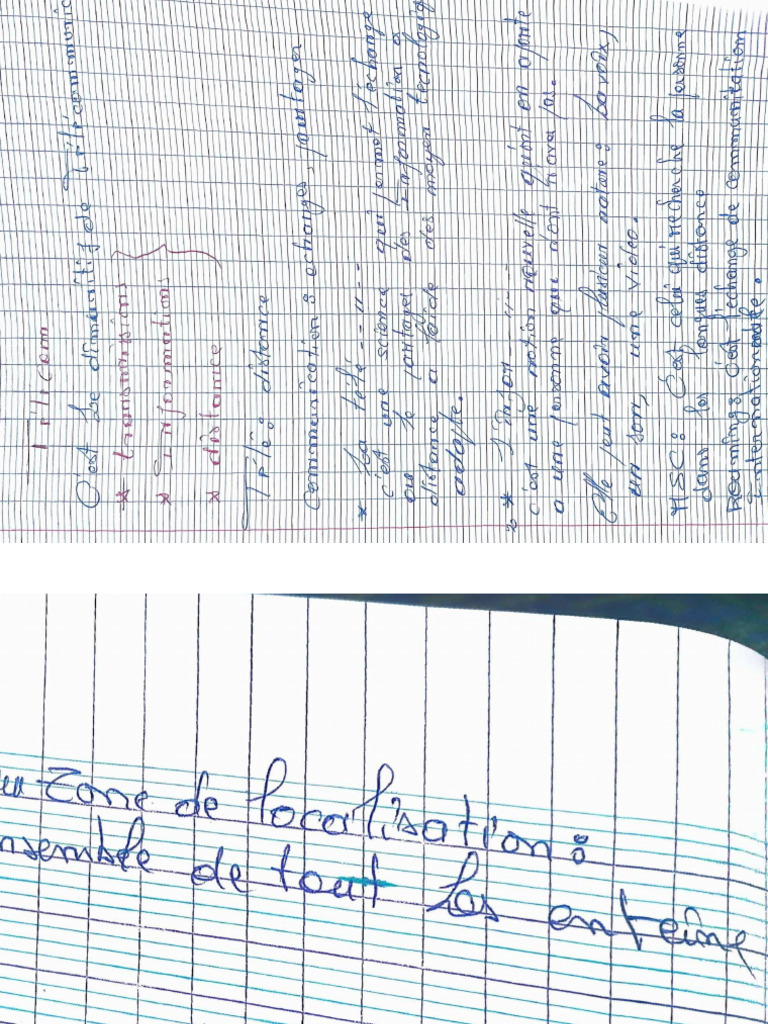 Télécom
C'est le diminitif de Télécommunic
* transmission
* Information
* distance
Télé : distance
Communication : echanges, partager
* La télé
c'est une science qui permet l'échange
ou le partager des Information a
distance a l'aide des moyen tecnologiq
adapte.
2 * L'infor
c'est une notion nouvelle qu'ont on aporte
a une personne que dont n'ora pas.
Elle peut avoir plusieur nature : la voix,
un son, une video.
HSC : C'est celui qui recherche la personne
dans les longues distance
Roaming : c'est l'echange de communitation
Internationale.
Zone de localisation :
nsemble de tout les enteine